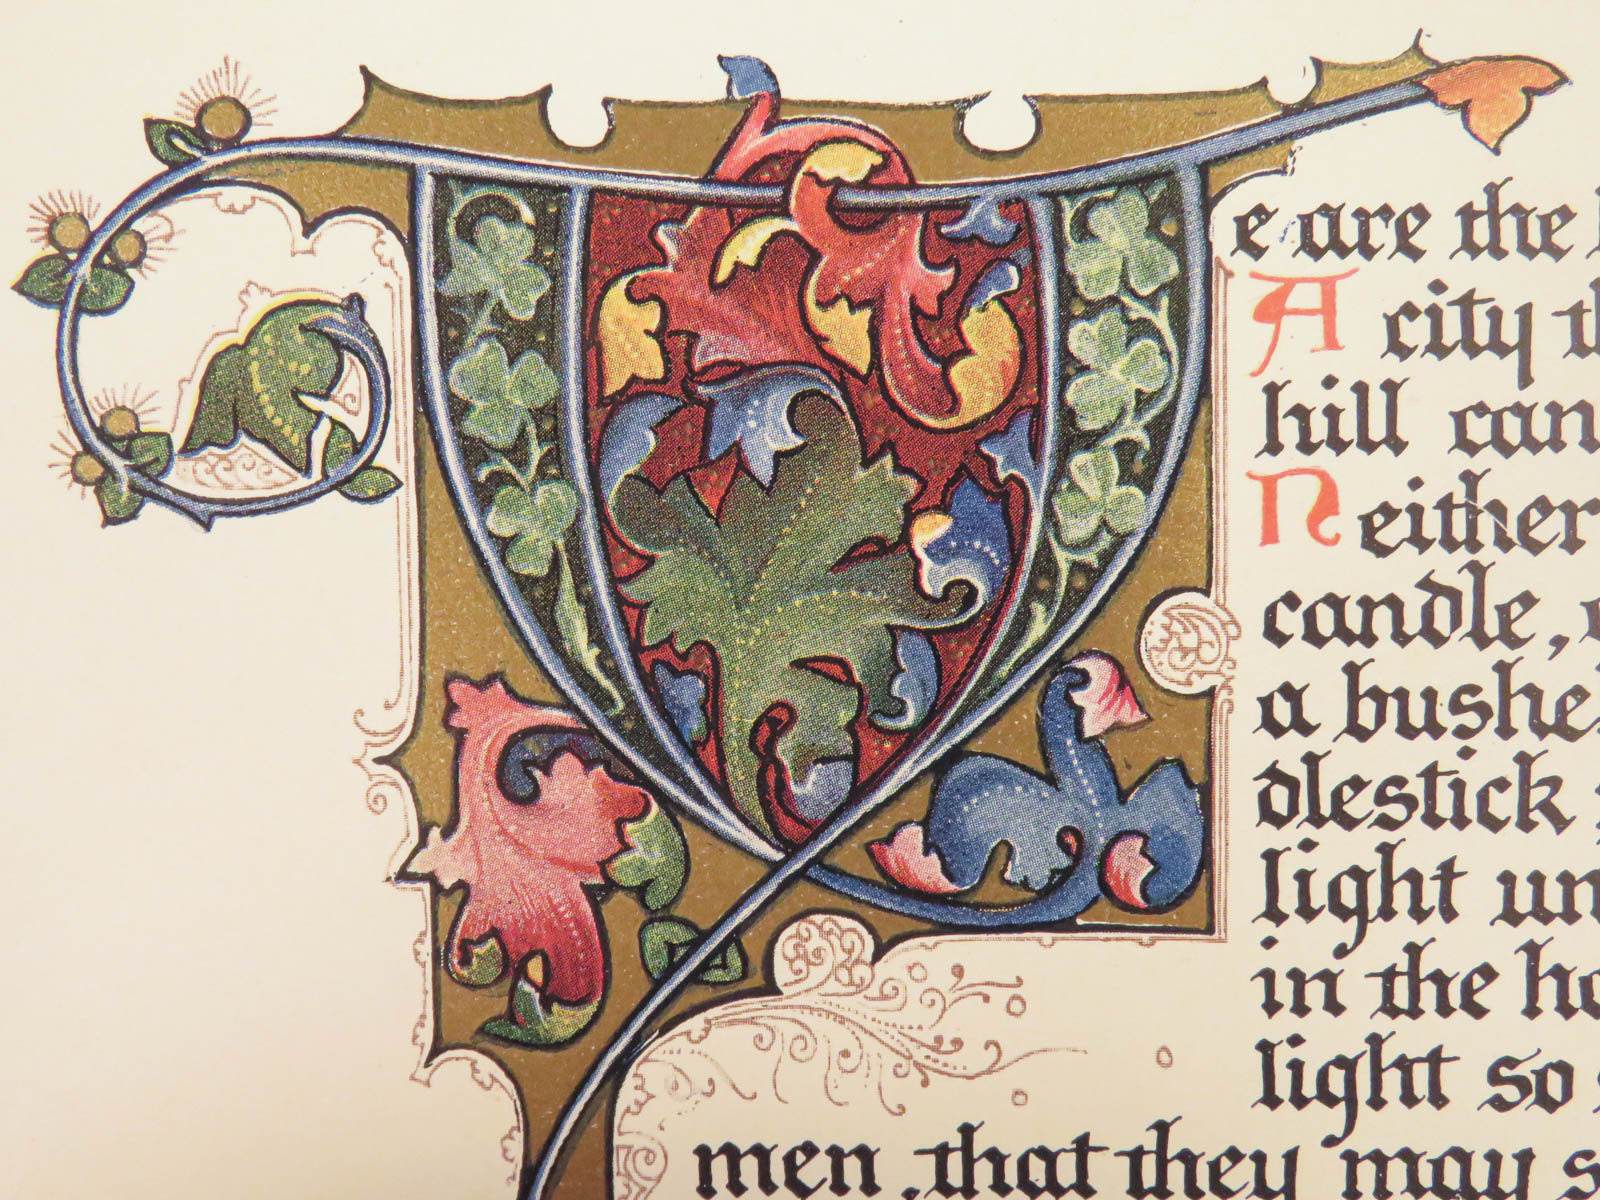 Ye are the
A city
hill can
Neither
candle,
a bushe
dlestick
light un
in the ho
light so
men, that they may s